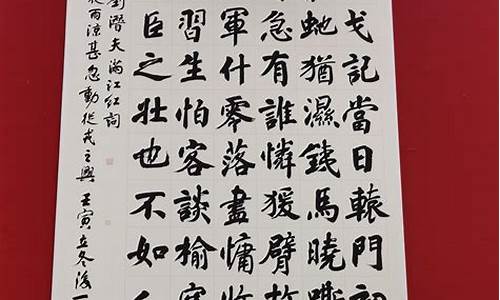 戈記當日轅門初
虵猶濕鐵馬曉嘶
急有誰憐猨臂故
軍什零落盡慵收
習生怕客談榆塞
臣之壯也不如人
劉潛夫滿江紅詞
夜雨涼甚忽動從戎之興 壬寅立冬後一